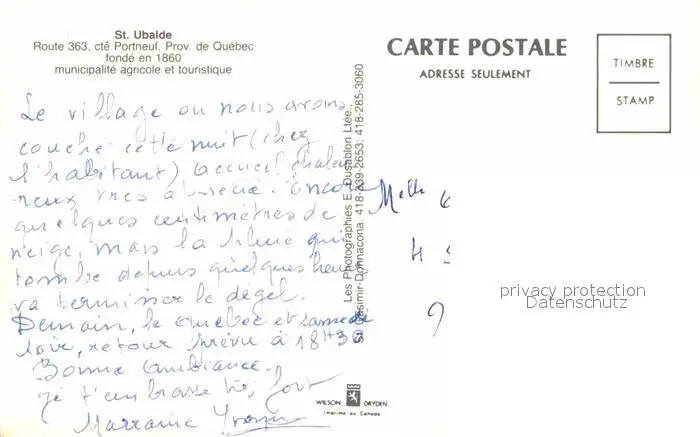 St. Ubalde
Route 363, cté Portneuf, Prov. de Québec
fondé en 1860
municipalité agricole et touristique
CARTE POSTALE
ADRESSE SEULEMENT
TIMBRE
STAMP
Le village ou nous avons
couché cette nuit (chez
l'habitant) accueil chaleu
reux très apprécié. Encore
quelques centimètres de
neige, mais la pluie qui
tombe depuis quelques heures
va terminer le dégel.
Demain, le Québec et samedi
soir, retour prévu à 18H30
Bonne ambiance.
Je t'embrasse très fort
Marraine Yvonne
Les Photographies E. Dusablon Ltée.,
St-Casimir-Donnacona 418-339-2653; 418-285-3060
Melle
privacy protection
Datenschutz
WILSON DRYDEN
Imprimé au Canada